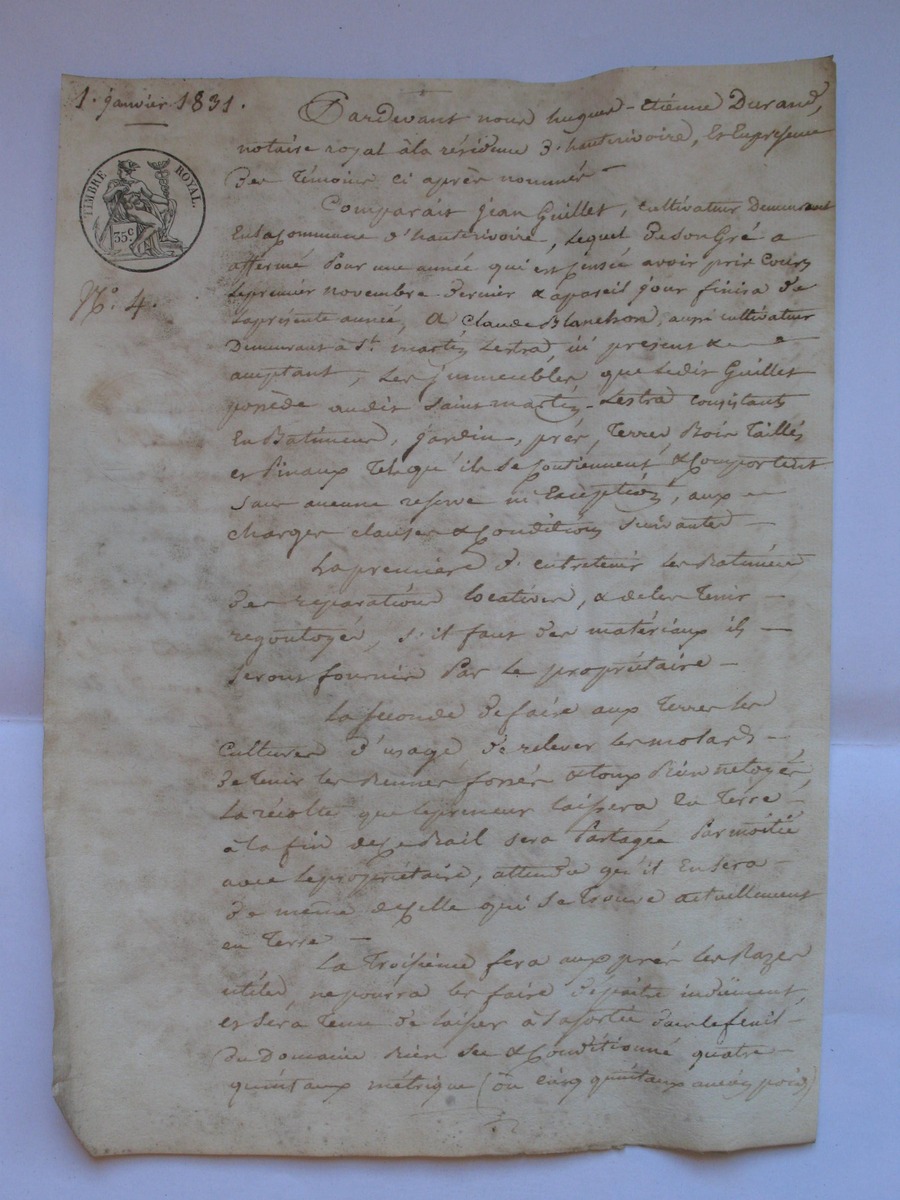 1. janvier 1831.
TIMBRE ROYAL.
35 c
N.º 4.
Pardevant nous hugues-etiénne Durand,
notaire royal àla résidence d'hauterivoire, et Enprésence
Des témoins ci après nommés
Comparait jean Guillet, cultivateur Demeurant
Enlacommune d'hauterivoire, Lequel Deson Gré a
affermé Pour une année qui est Censée avoir pris Cours
Lepremier novembre dernier & apareil jour finira de
Laprésente année, a claude Blanchon, aussi cultivateur
Demeurant à St. martin Lestra, ici present &
acceptant, Les jmmeubles que Ledit Guillet
possède audit Saint martin-Lestra consistants
En Batiments, jardin, prés, Terres, Bois Taillés
et Pinaux Telsqu'ils Se Contiennent & Comportent
Sans aucune reserve ni Exception, aux
charges clauses & Conditions suivantes
Lapremière d'entretenir les Batiments
des reparations locatives, & deles Tenir
regoutoyés, s'il faut des matériaux ils
seront fournis Par le propriétaire
La seconde defaire aux Terres les
Cultures d'usage, de relever les molards
de Tenir les fossés Bien netoyés,
La récolte que lepreneur laissera En Terre
à la fin deceBail sera Partagée Parmoitié
avec lepropriétaire, attendu qu'il Ensera
de même decelle qui se trouve actuellement
en Terre
La Troisième fera aux prés les Razes
utiles, nepourra les faire dépaitre induëment,
et Sera Tenu de laisser à Sasortie
du Domaine Bien sec & Conditionné quatre
quintaux métrique (ou cinq quintaux ancien poids)